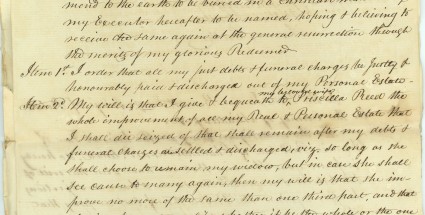 to the earth to be buried in a Christian
my Executor hereafter to be named, hoping & believing to
receive the same again at the general resurrection through
the merits of my glorious Redeemer
Item 1st. I order that all my just debts & funeral charges be justly &
honourably paid & discharged out of my Personal Estate
my beloved wife
Item 2d. My will is that I give & bequeath to Priscilla Reed the
whole improvement of all my Real & Personal Estate that
I shall die seized of that shall remain after my debts &
funeral charges are settled & discharged, viz. so long as she
shall choose to remain my widow, but in case she shall
see cause to marry again, then my will is that she im-
prove no more of the same than one third part, and that
it be the whole or the one